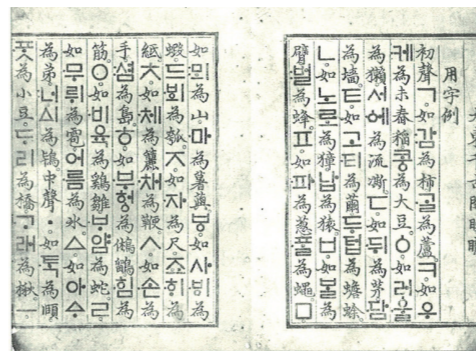 用字例
初聲ㄱ。如감為柿。ᄀᆞᆯ為蘆。ㅋ。如우
케為未舂稻。콩為大豆。ㆁ。如러울
為獺。서에為流凘。ㄷ。如뒤為茅。담
為墻。ㅌ。如고티為繭。두텁為蟾蜍。
ㄴ。如노로為獐。납為猿。ㅂ。如ᄇᆞᆯ為
臂。벌為蜂。ㅍ。如파為葱。ᄑᆞᆯ為蠅。ㅁ
如뫼為山。마為薯藇。ㅸ。如사ᄫᅵ為
蝦。드ᄫᅴ為瓠。ㅈ。如자為尺。죠ᄒᆡ為
紙。ㅊ。如체為籭。채為鞭。ㅅ。如손為
手。셤為島。ㅎ。如부헝為鵂鶹。힘為
筋。ㅇ。如비육為鷄雛。ᄇᆞ얌為蛇。ㄹ。
如무뤼為雹。어름為氷。ㅿ。如아ᅀᆞ
為弟。너ᅀᅵ為鴇。中聲ㆍ。如ᄐᆞᆨ為頤。
ᄑᆞᆺ為小豆。ᄃᆞ리為橋。ᄀᆞ래為楸。ㅡ